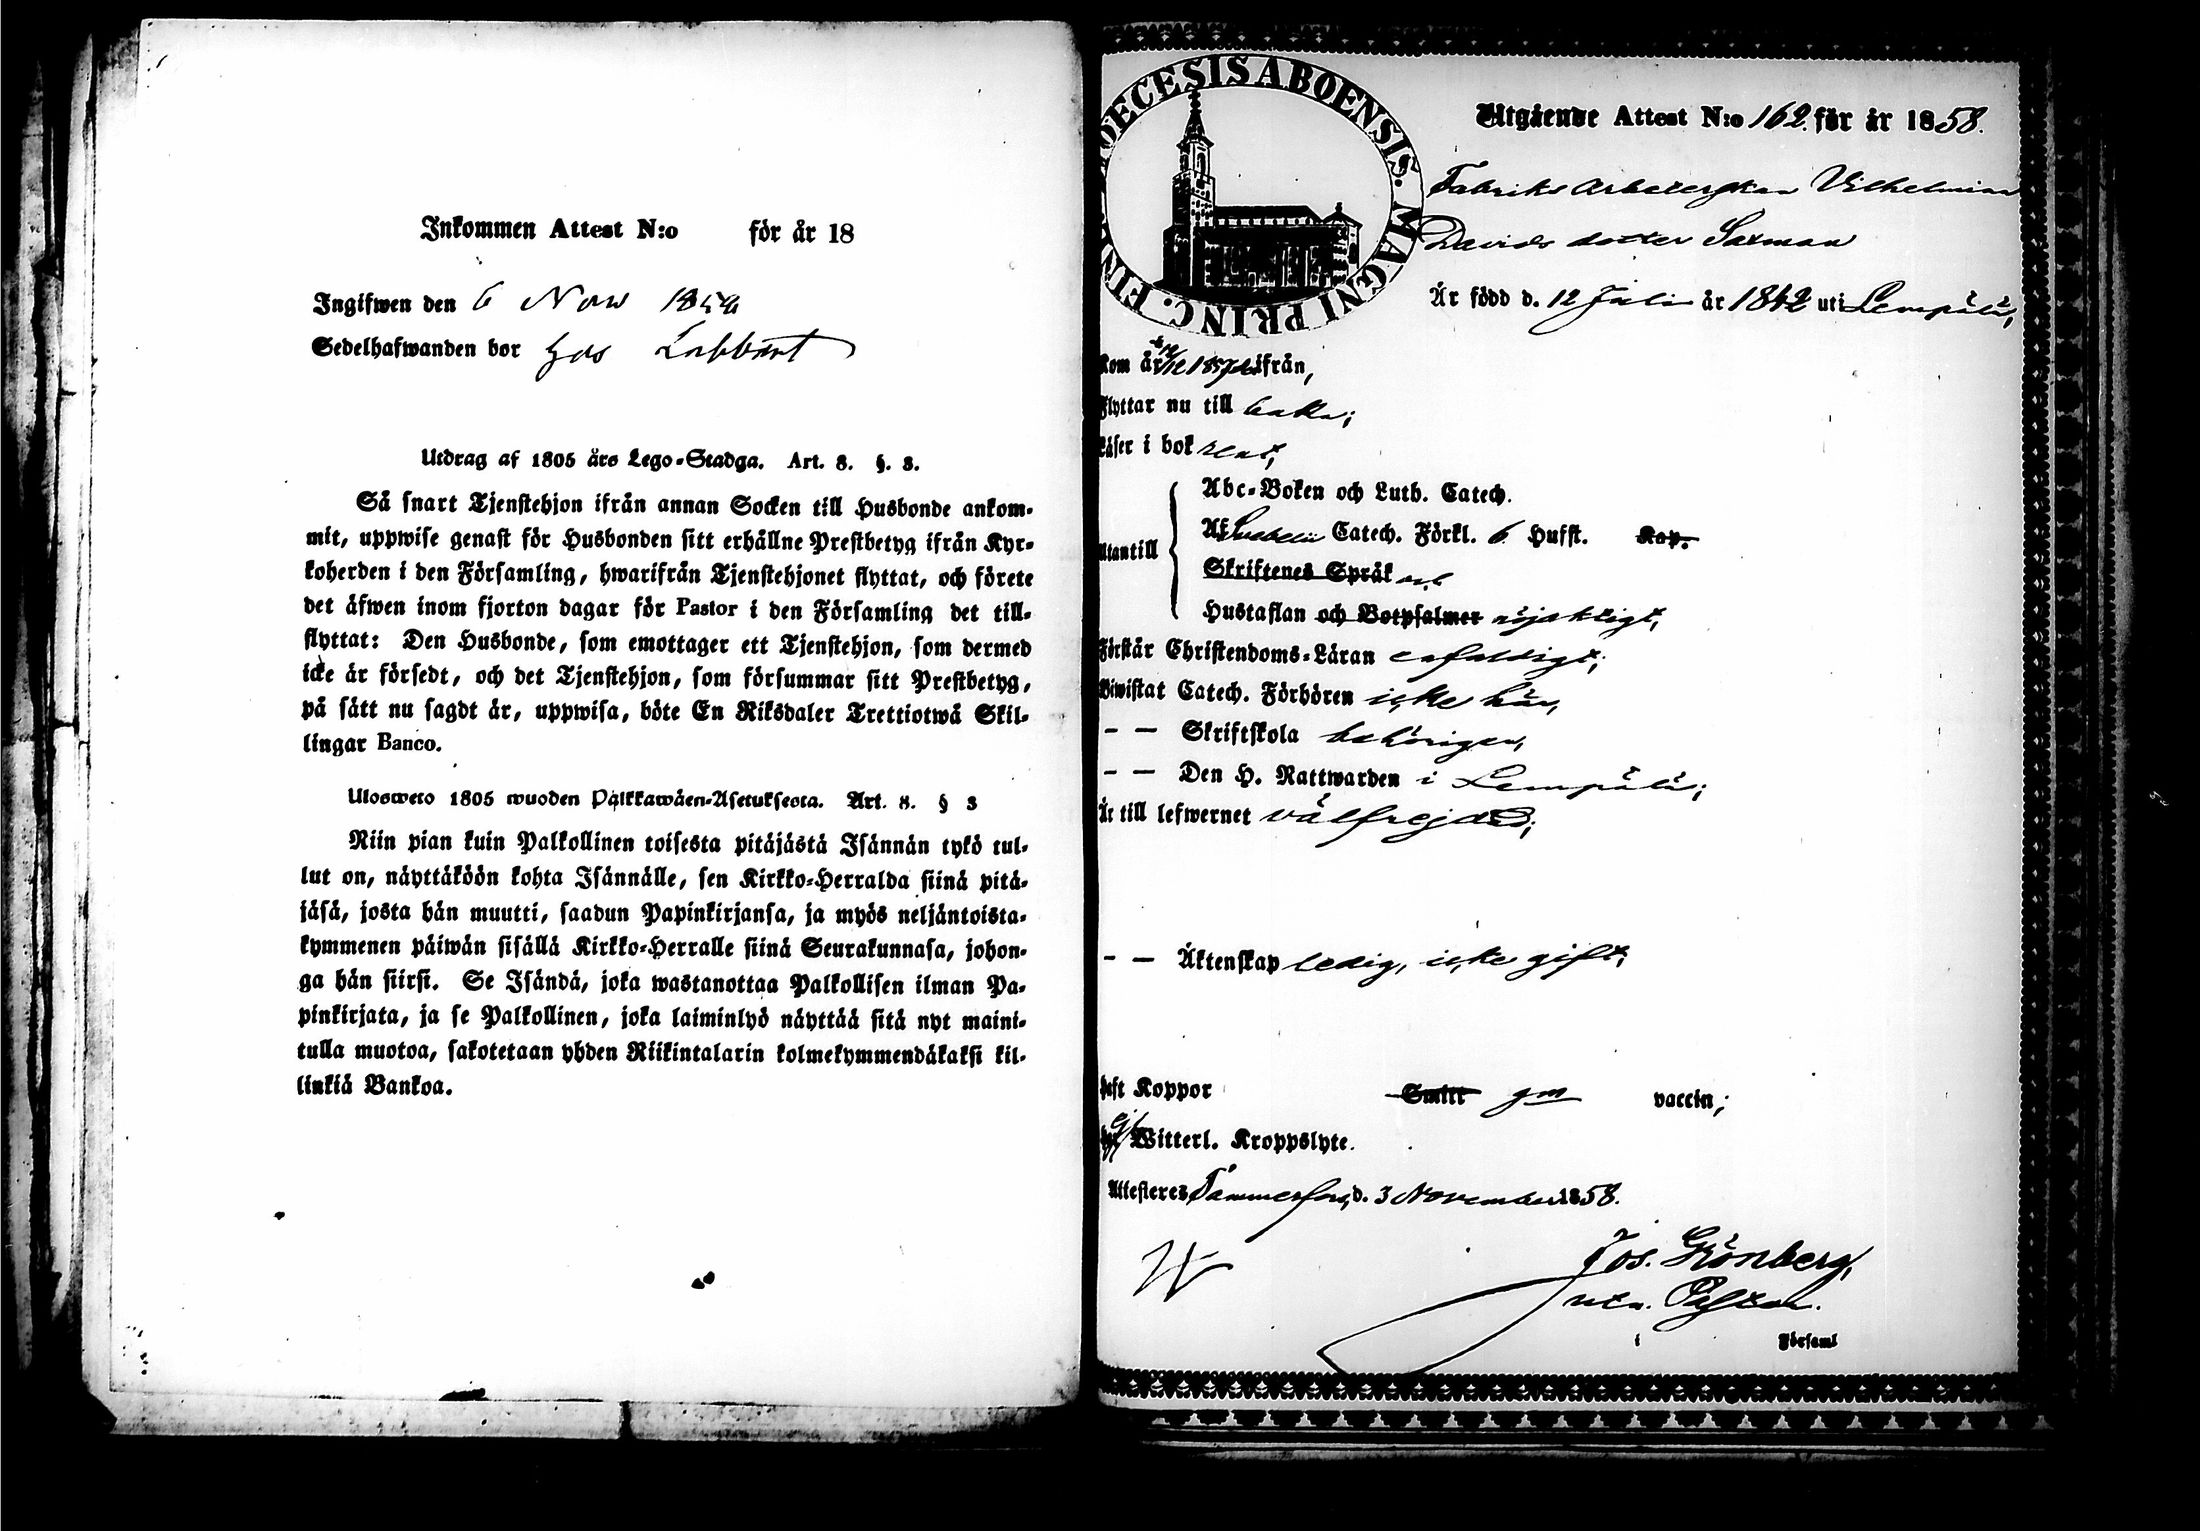 Inkommen Attest N:o för år 18
Ingifwen den 6 Nov 185
Sedelhafwanden bor hos
Utdrag af 1805 års Lego-Stadga. Art. 8. §. 3.
Så snart Tjenstehjon ifrån annan Socken till Husbonde ankom-
mit, uppwise genast för Husbonden sitt erhållne Prestbetyg ifrån Kyr-
koherden i den Församling, hwarifrån Tjenstehjonet flyttat, och förete
det äfwen inom fjorton dagar för Pastor i den Församling det till-
flyttat: Den Husbonde, som emottager ett Tjenstehjon, som dermed
icke är försedt, och det Tjenstehjon, som försummar sitt Prestbetyg,
på sätt nu sagdt är, uppwisa, böte En Riksdaler Trettiotwå Skil-
lingar Banco.
Ulosweto 1805 wuoden Palkkawäen-Asetuksesta. Art. 8. § 3
Niin pian kuin Palkollinen toisesta pitäjästä Isännän tykö tul-
lut on, näyttäköön kohta Isännälle, sen Kirkko-Herralda siinä pitä-
jäsä, josta hän muutti, saadun Papinkirjansa, ja myös neljäntoista-
kymmenen päiwän sisällä Kirkko-Herralle siinä Seurakunnasa, johon-
ga hän siirsi. Se Isändä, joka wastanottaa Palkollisen ilman Pa-
pinkirjata, ja se Palkollinen, joka laiminlyö näyttää sitä nyt maini-
tulla muotoa, sakotetaan yhden Riikintalarin kolmekymmendäkaksi kil-
linkiä Bankoa.
DECESIS ABOENSIS. MAGNI PRINC. FIN
Utgående Attest N:o 162. för år 1858.
Fabriks Arbeterskan Vilhelmina
Davids dotter Saxman
Är född d. 12 Juli år 1842 uti Lempälä,
Kom år 1857 ifrån,
Flyttar nu till baka;
Läser i bok rent,
Utantill
Abc-Boken och Luth. Catech.
Af Svebelii Catech. Förkl. 6 Hufst. Kap.
Skriftenes Språk
Hustaflan och Botpsalmer nöjaktigt,
Förstår Christendoms-Läran enfaldigt;
Biwistat Catech. Förhören icke här,
– – Skriftskola behörigen,
– – Den H. Nattwarden i Lempälä;
Är till lefwernet välfrejdad;
– – Äktenskap ledig, icke gift;
haft Koppor Smitt gm vaccin;
Witterl. Kroppslyte.
Attesteres Tammerfors, d. 3 November 1858.
Jos. Grönberg,
Pastor.
i Församl